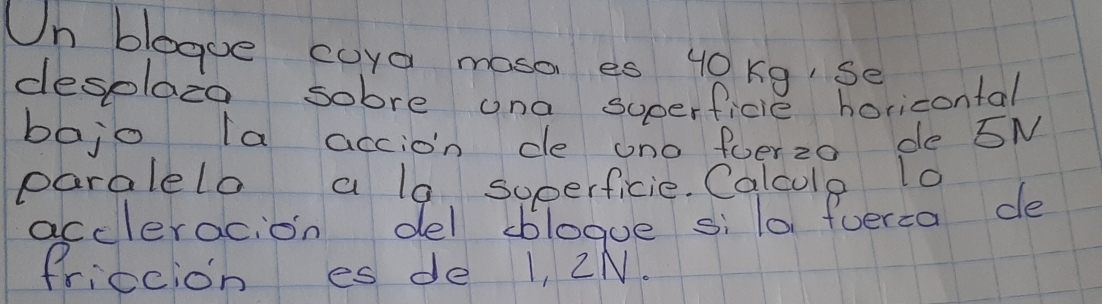 Un bloque cuya masa es 40 Kg, se
desplaza sobre una superficie horicontal
bajo la acción de una fuerza de 5N
paralela a la superficie. Calcula la
aceleración del bloque si la fuerza de
fricción es de 1,2N.